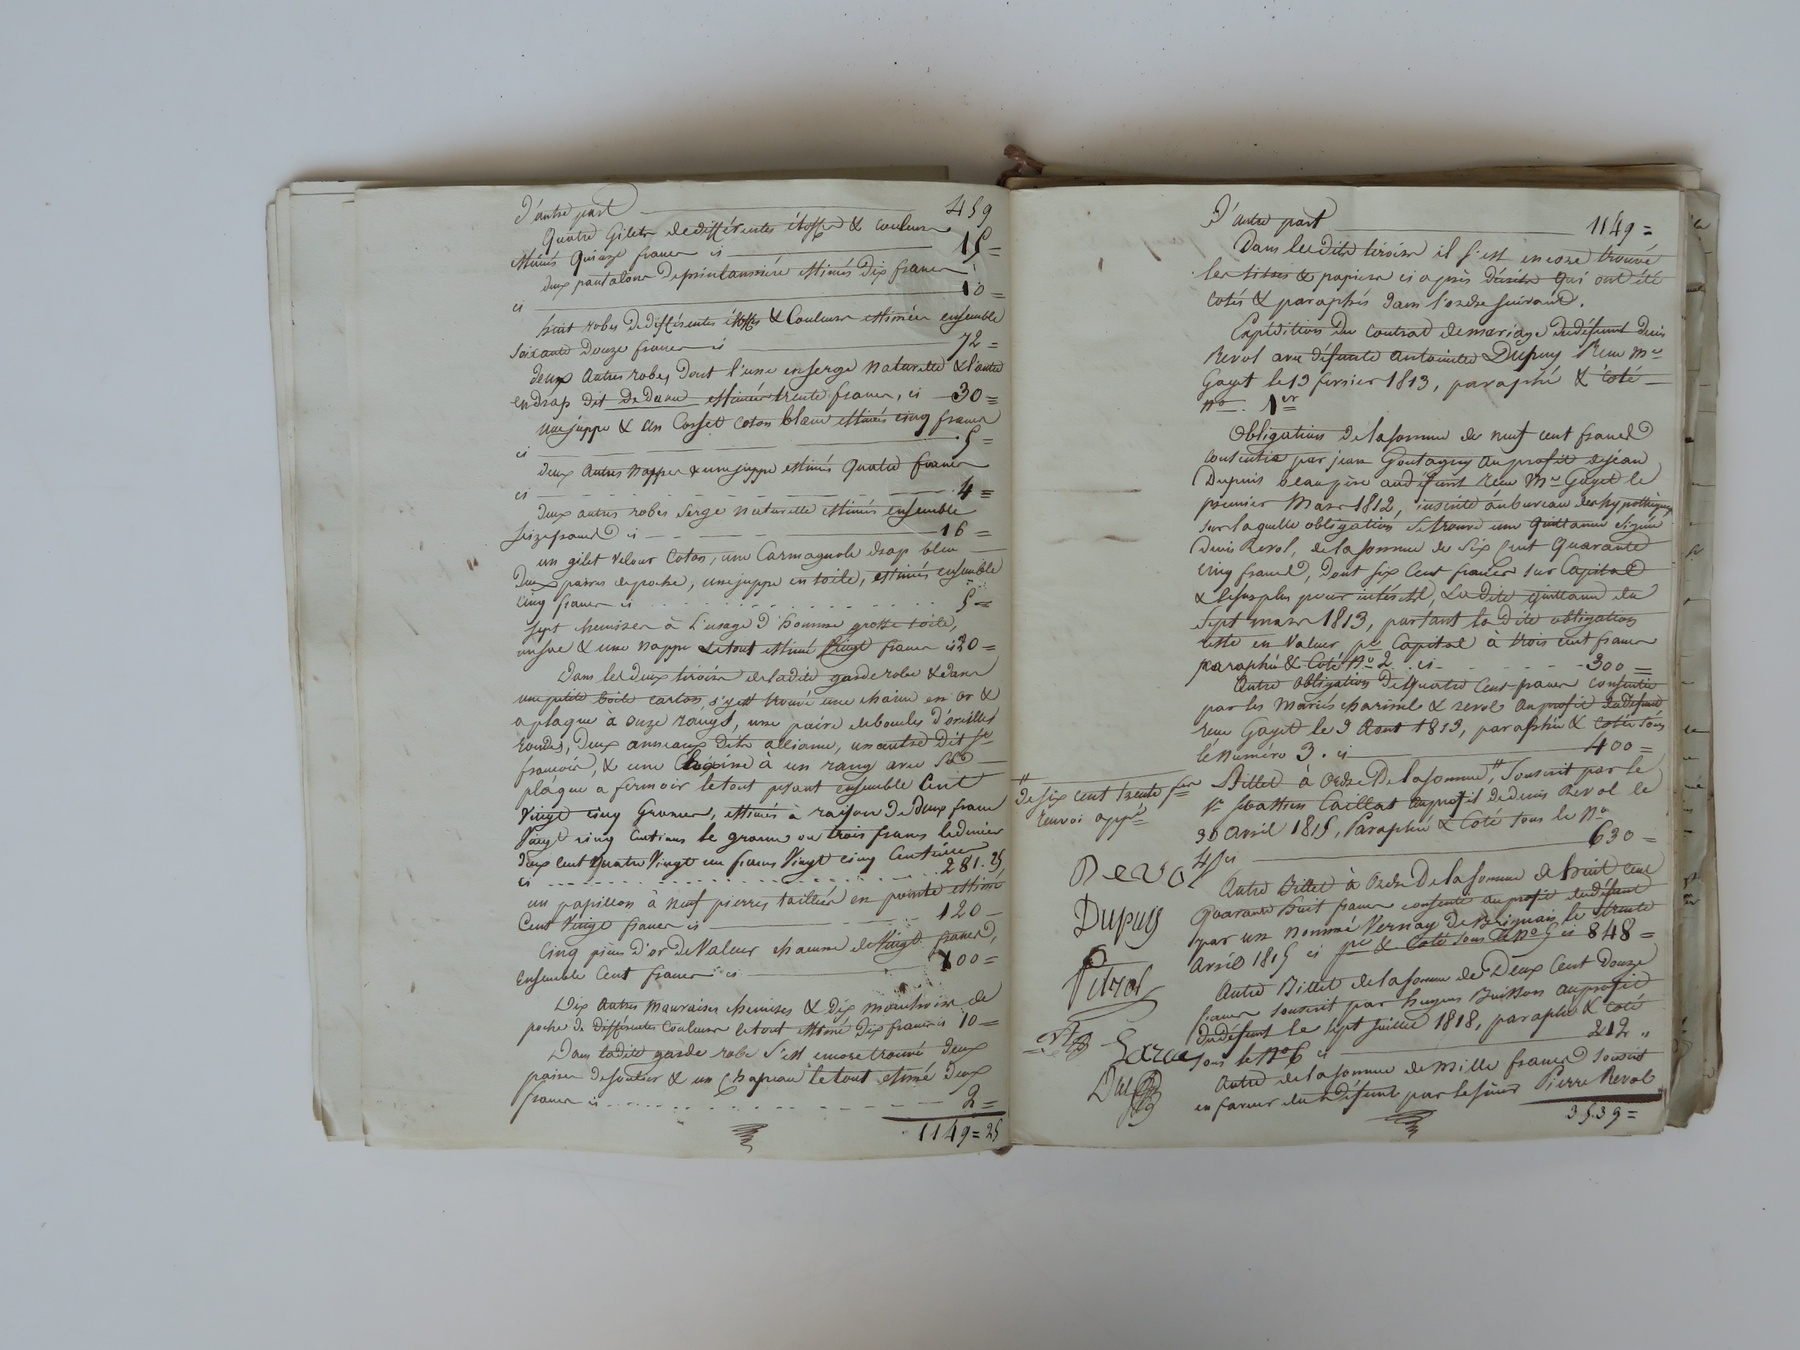 D'autre part 459
Quatre Gilets de différentes étoffes & couleurs
estimés Quinze francs ci 15=
deux pantalons de printannière estimés dix francs
ci 10=
huit robes de différentes étoffes & Couleurs estimées ensemble
soixante douze francs ci 72=
deux autres robes, dont l'une en serge naturelle & l'autre
en drap dit de dame estimées trente francs, ci 30=
une juppe & un Corset coton blanc estimés cinq francs
ci 5=
deux autres nappes & une juppe estimés Quatre francs
ci 4=
deux autres robes serge naturelle estimés ensemble
seize francs ci 16=
un gilet velour coton, une Carmagnole drap bleu
deux paires de poche, une juppe en toile, estimés ensemble
cinq francs ci 5=
sept chemises à l'usage d'homme grosse toile,
& une nappe le tout estimé vingt francs ci 20=
Dans les deux tiroirs de ladite garderobe & dans
une petite boite carton, s'y est trouvé une chaine en or &
a plaque à onze rangs, une paire de boucles d'oreilles
rondes, deux anneaux dits alliance, un autre dit st
françois, & une Chaine à un rang avec sa
plaque a fermoir le tout pesant ensemble Cent
Vingt cinq Grammes, estimés à raison de deux francs
Vingt cinq centimes le gramme ou trois francs le denier
deux cent quatre Vingt un francs Vingt cinq Centimes
ci 281.25
un papillon à neuf pierres taillées en pointe estimé
Cent Vingt francs ci 120
Cinq pièces d'or de Valeur chacune de Vingt francs,
Ensemble Cent francs ci 100=
Dix autres mauvaises chemises & dix mouchoirs de
poche de différentes couleurs le tout estimé dix francs ci 10=
Dans ladite garde robe s'est encore trouvé deux
paires de soulier & un Chapeau le tout estimé deux
francs ci 2=
1149=25
D'autre part 1149=
Dans lesdits tiroirs il s'est encore trouvé
les titres & papiers ci après décrits qui ont été
cotés & paraphés dans l'ordre suivant.
Expédition du contrat de mariage du défunt Denis
Revol avec défunte antoinette Dupuy Reçu Me
Gayet le 13 fevrier 1813, paraphé & coté
No. 1er
Obligation de la somme de neuf cent francs
consentie par jean Goutagny au profit de jean
Dupuis beaupère au défunt reçue Me Gayet le
premier Mars 1812, inscrite au bureau des hypothèques
sur laquelle obligation se trouve une quittance signée
Denis Revol, de la somme de six Cent Quarante
cinq francs, dont six Cent francs sur Capital
& le surplus pour intérêts, Ladite quittance du
sept mars 1813, partant la dite obligation
reste en Valeur pr Capital à trois cent francs
paraphée & Coté No 2. ci 300=
Autre obligation de quatre Cent francs consentie
par les Mariés & revol au profit du défunt
reçue Gayet le 3 Aout 1813, paraphée & cotée sous
le Numéro 3. ci 400=
Billet à ordre De la somme, // Souscrit par le
sr Caillat au profit de denis Revol le
30 avril 1815, Paraphé & Coté sous le No
4 ci 630=
Autre Billet à ordre De la somme de huit Cent
Quarante huit francs consenti au profit du défunt
par un nommé Vernay De Brignais le trente
Avril 1815 ci pé & Coté sous le No 5 ci 848=
Autre Billet de la somme de Deux Cent Douze
francs souscrit par Buisson au profit
du défunt le sept juillet 1818, paraphé & coté
sous le No 6 ci 212 "
Autre de la somme de mille francs souscrit
en faveur du défunt par le sieur Pierre Revol
3539=
//
De six cent trente frcs
renvoi appé
Revol
Dupuy